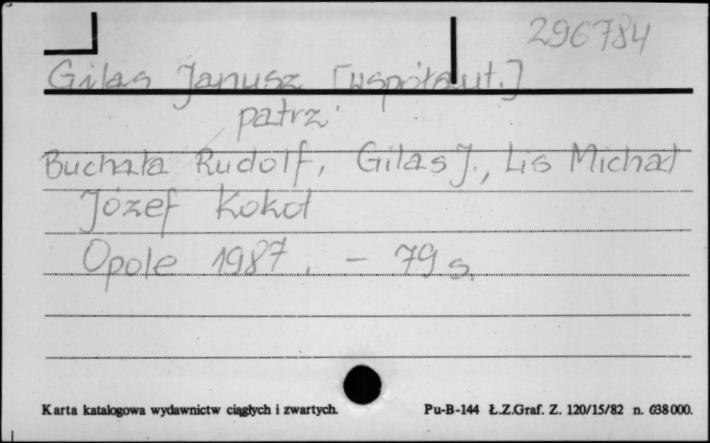 296784
Gilas Janusz [współaut.]
patrz
Buchała Rudolf, Gilas J., Lis Michał
Józef Kokot
Opole 1987. - 79 s.
Karta katalogowa wydawnictw ciągłych i zwartych. Pu-B-144 Ł.Z.Graf. Z. 120/15/82 n. 638000.